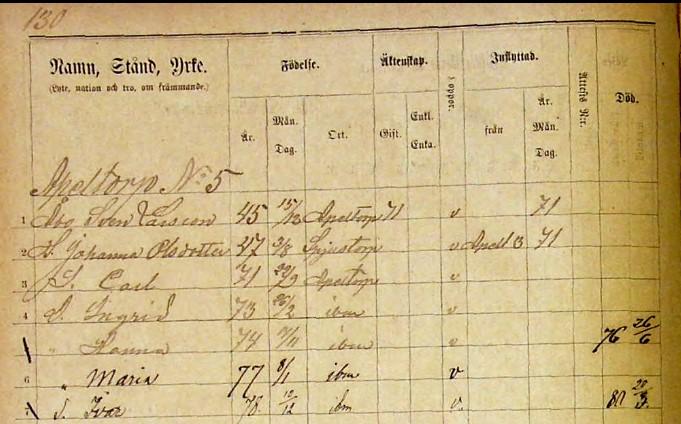 130
Namn, Stånd, Yrke. Födelse. Äktenskap. Koppor. Inflyttad. Attests N:r. Död.
(Lyte, nation och tro, om främmande.)
År. Mån. Dag. Ort. Gift. Enkl. Enka. från År. Mån. Dag.
Apeltorp No 5
1 Åbo Sven Larsson 45 15/12 Apeltorp 71 v 71
2 H. Johanna Olsdotter 47 3/8 Spjustorp v Apelt 3 71
3 S. Carl 71 29/9 Apeltorp v
4 D. Ingrid 73 26/2 ibm v
" Hanna 74 7/11 ibm v 76 26/6
6 " Maria 77 8/1 ibm v
7 S. Ivar 78 10/12 ibm v. 80 20/3